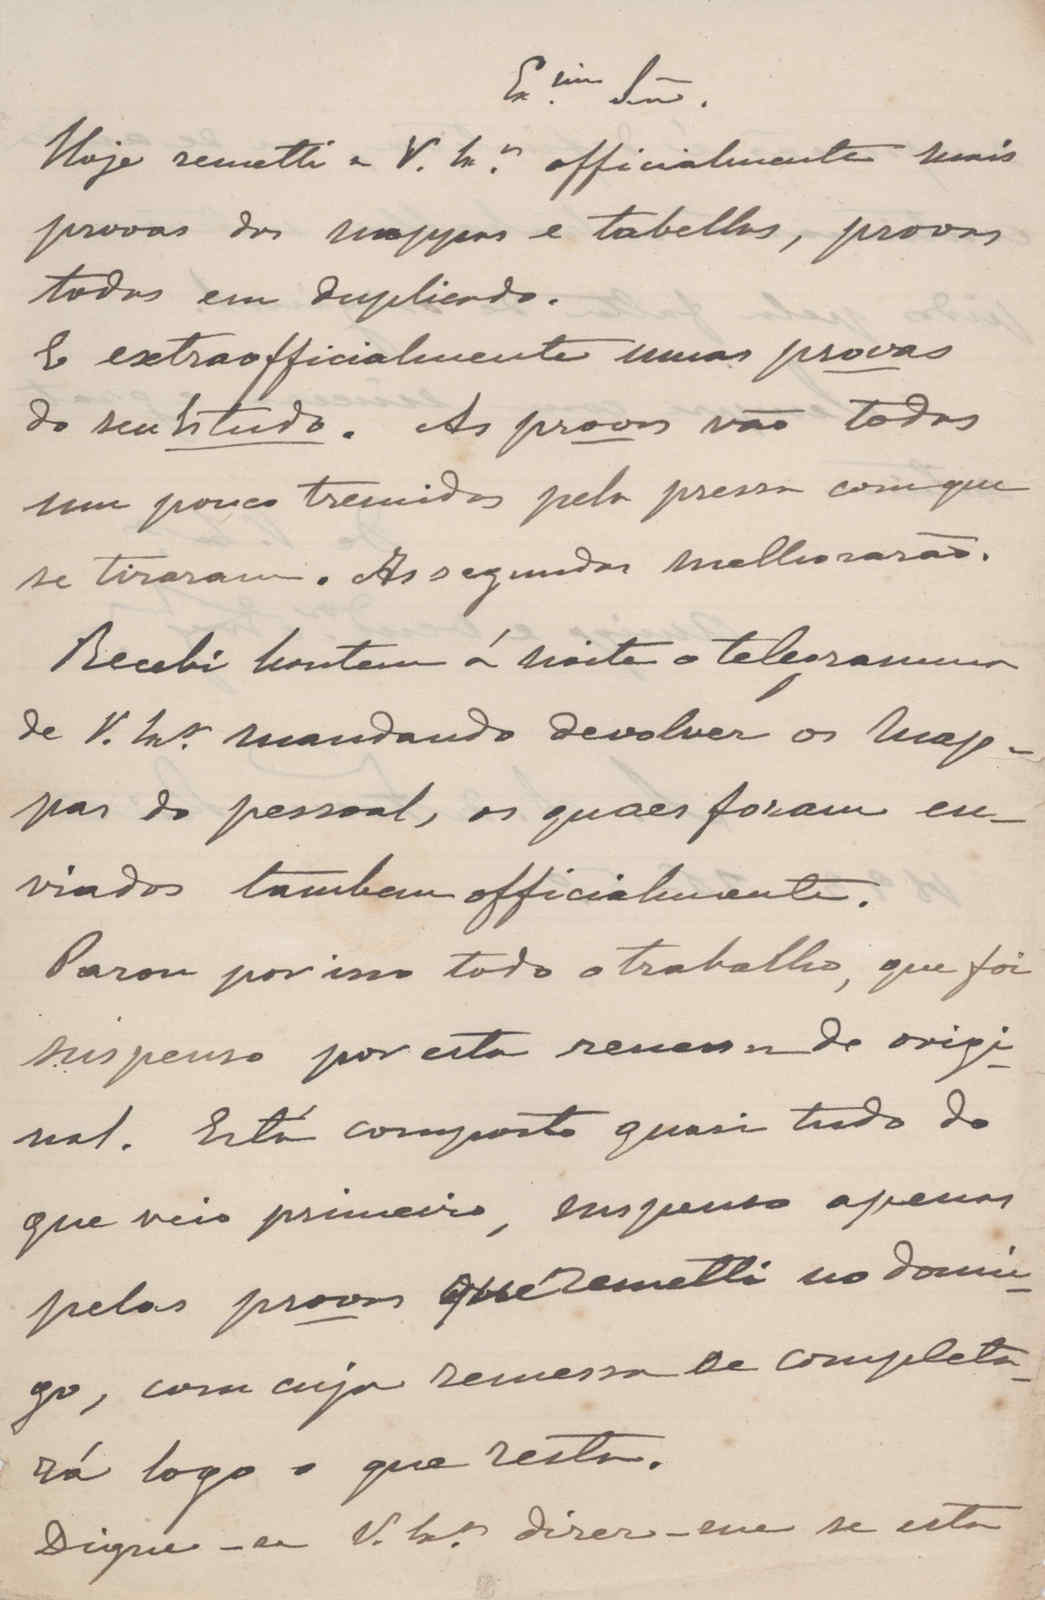 Ex.mo Snr.
Hoje remetti a V. Ex.a officialmente mais
provas dos mappas e tabellas, provas
todas em duplicado.
E extraofficialmente umas provas
do seu Estudo. As provas vão todas
um pouco tremidas pela pressa com que
se tiraram. As segundas melhorarão.
Recebi hontem á noite o telegramma
de V. Ex.a mandando devolver os map-
pas do pessoal, os quaes foram en-
viados tambem officialmente.
Parou por isso todo o trabalho, que foi
suspenso por esta remessa de origi-
nal. Está composto quasi tudo do
que veio primeiro, suspenso apenas
pelas provas que remetti no domin-
go, com cuja remessa se completa-
rá logo o que resta.
Digne-se V. Ex.a dizer-me se esta